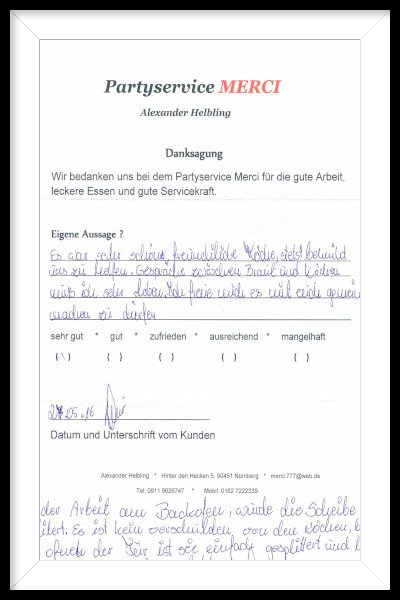 Partyservice MERCI
Alexander Helbling
Danksagung
Wir bedanken uns bei dem Partyservice Merci für die gute Arbeit,
leckere Essen und gute Servicekraft.
Eigene Aussage ?
Es war sehr schöne, freundliche Köche, stets bemüht
uns zu helfen. Gespräche zwischen Braut und Köchen
muß ich sehr loben. Ich freue mich es mit euch
machen zu dürfen
sehr gut * gut * zufrieden * ausreichend * mangelhaft
(\) ( ) ( ) ( ) ( )
05.16
Datum und Unterschrift vom Kunden
Alexander Helbling * Hinter den Hecken 5, 90451 Nürnberg * merci.777@web.de
Tel: 0911 9626747 * Mobil: 0162 7222339
der Arbeit am Backofen, wurde die Scheibe
Es ist kein verschulden von den Köchen,
der Tür ist sie einfach gesplittert und